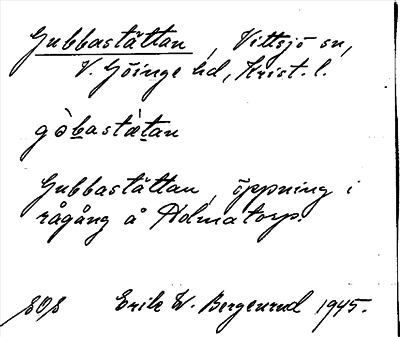 Gubbastättan, Vittsjö sn,
V. Göinge hd, Krist. l.
gòbastæ̀tan
Gubbastättan, öppning i
rågång å Holmatorp.
Erik W. Bergenrud 1945.